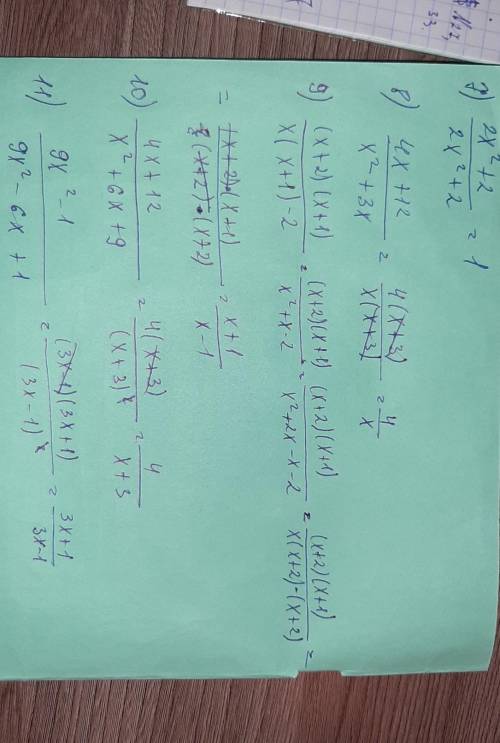 7) (2x²+2)/(2x²+2) = 1
8) (4x+12)/(x²+3x) = 4(x+3)/x(x+3) = 4/x
9) (x+2)(x+1)/(x(x+1)-2) = (x+2)(x+1)/(x²+x-2) = (x+2)(x+1)/(x²+2x-x-2) = (x+2)(x+1)/(x(x+2)-(x+2)) =
= = (x+1)/(x-1)
10) (4x+12)/(x²+6x+9) = 4(x+3)/(x+3)² = 4/(x+3)
11) (9x²-1)/(9x²-6x+1) = (3x-1)(3x+1)/(3x-1)² = (3x+1)/(3x-1)